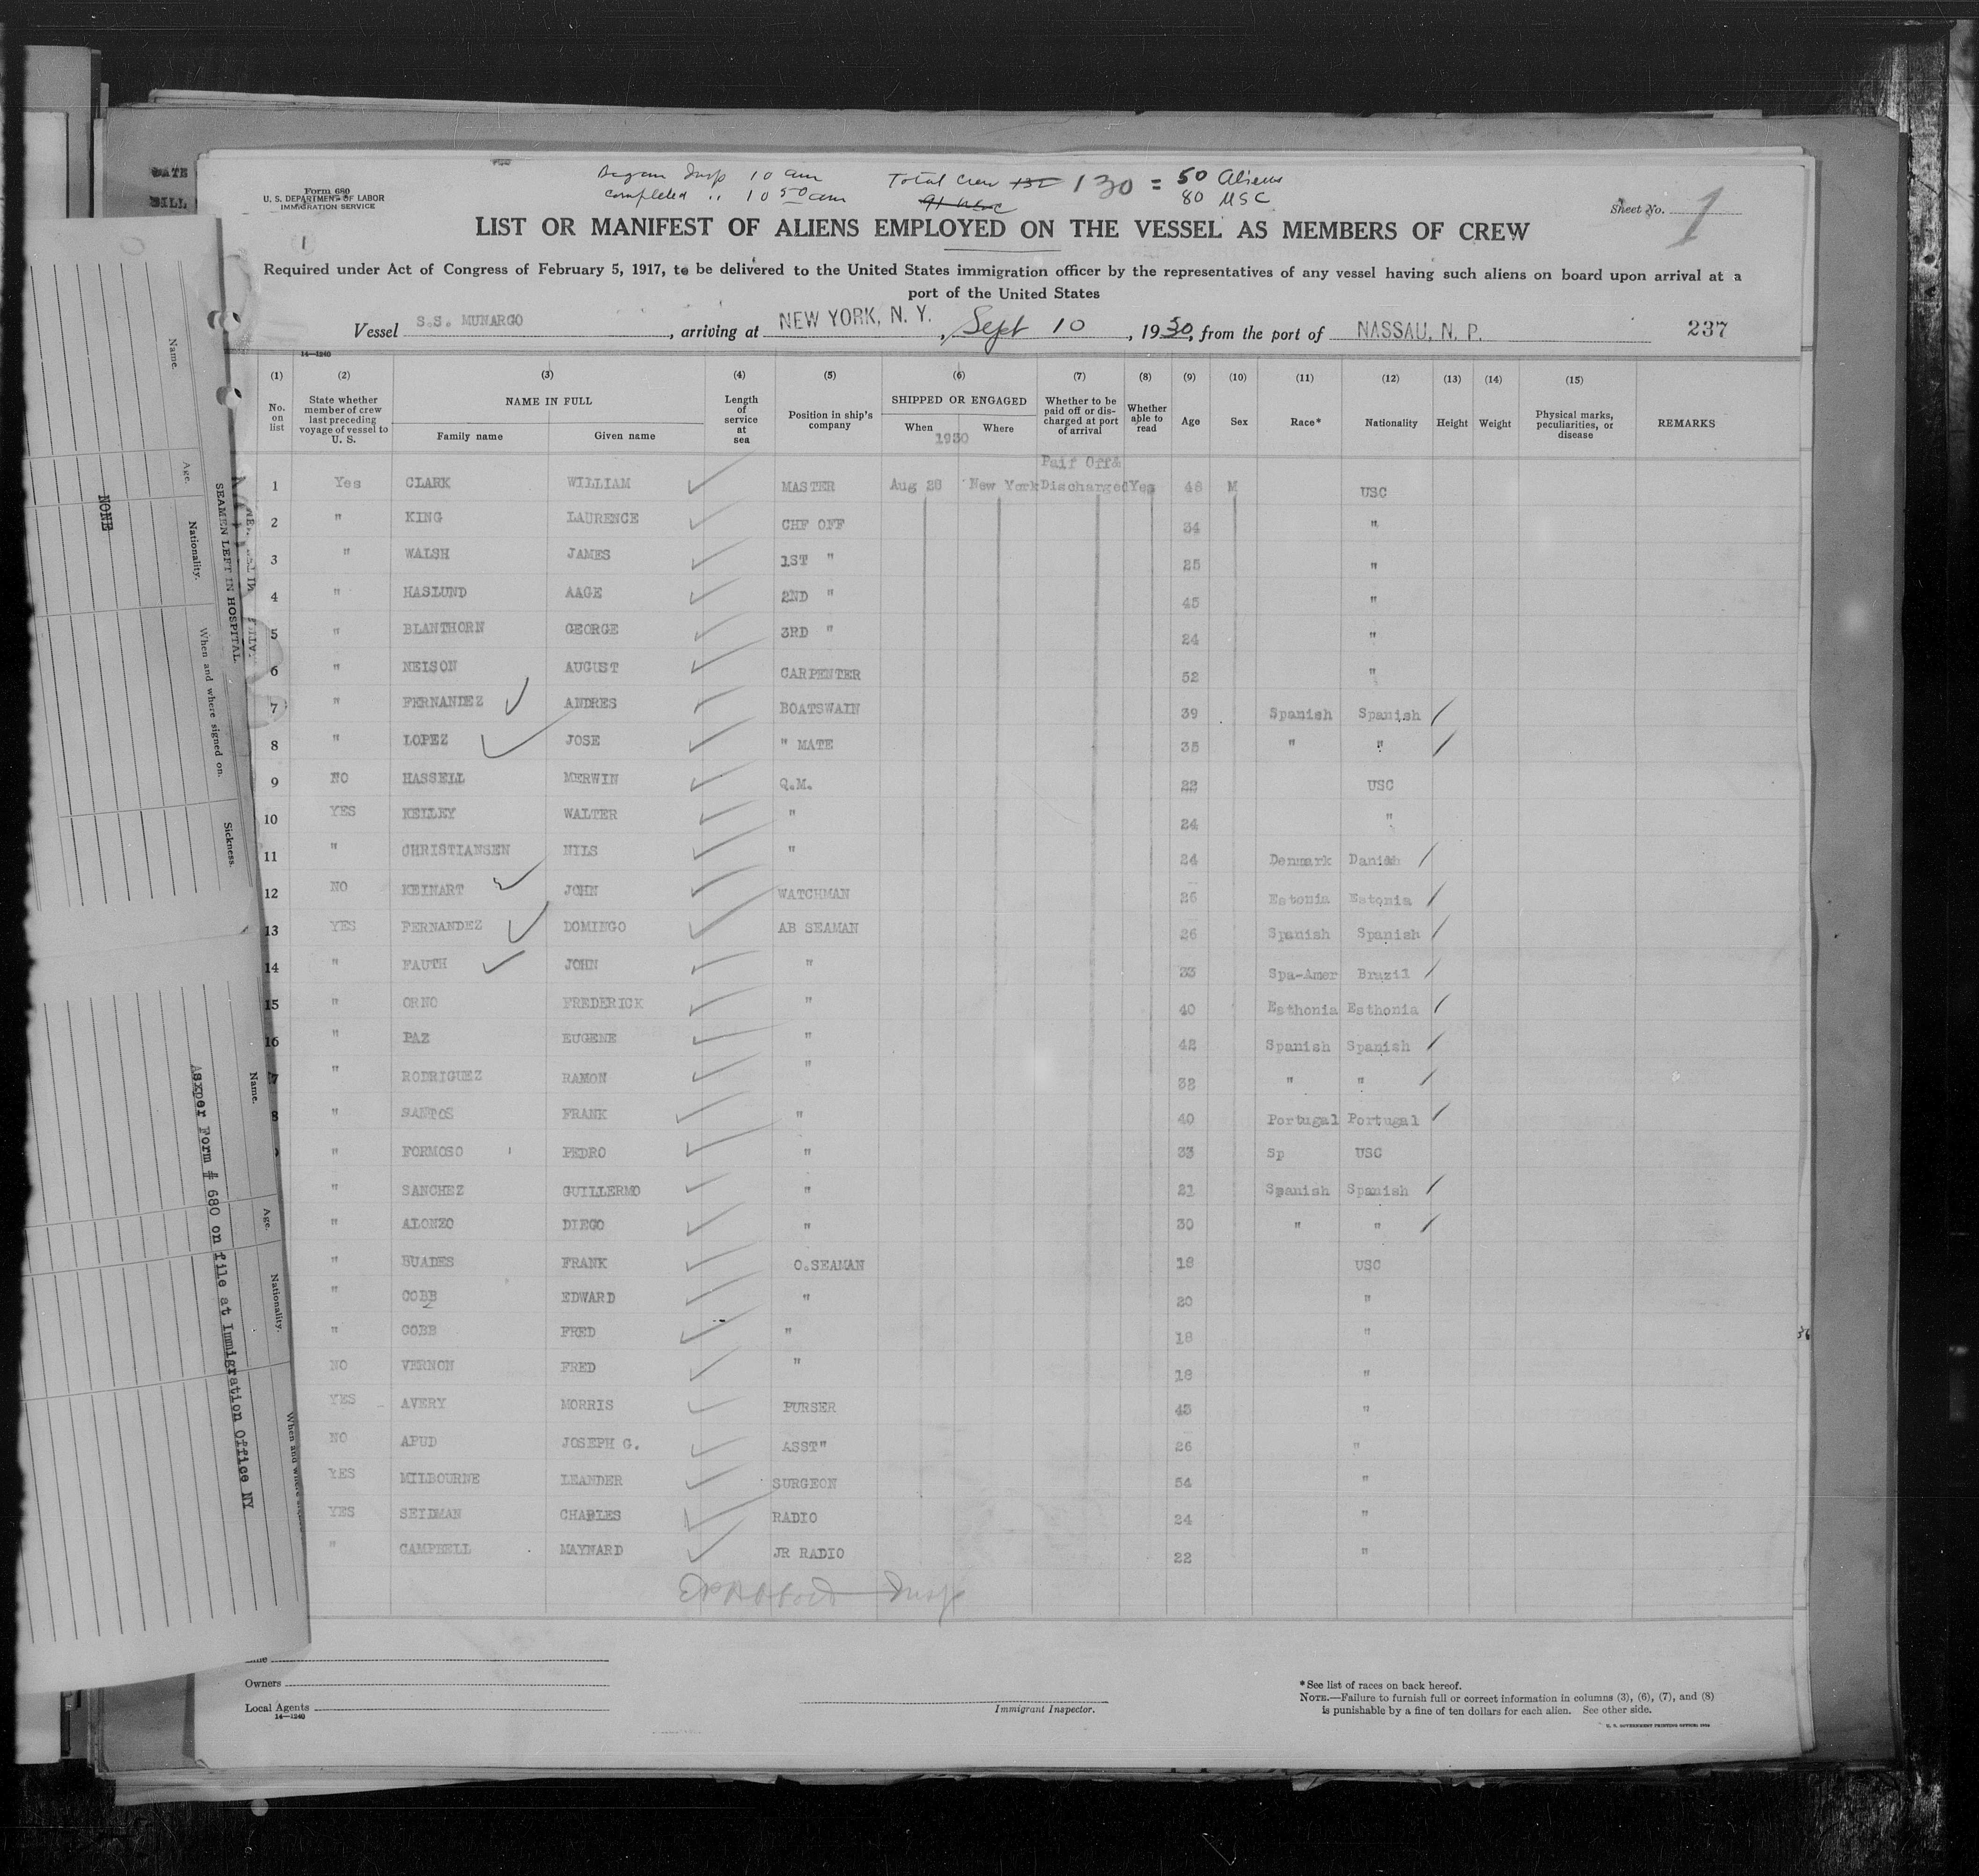 Form 680
U. S. DEPARTMENT OF LABOR
IMMIGRATION SERVICE
Began Insp 10 am
completed " 10 50 am
Total Crew 132 130 = 50 Aliens
80 USC
Sheet No. 1
LIST OR MANIFEST OF ALIENS EMPLOYED ON THE VESSEL AS MEMBERS OF CREW
1
Required under Act of Congress of February 5, 1917, to be delivered to the United States immigration officer by the representatives of any vessel having such aliens on board upon arrival at a
port of the United States
Vessel S.S. MUNARGO, arriving at NEW YORK, N. Y., Sept 10, 1930, from the port of NASSAU, N. P. 237
14—1240
(1) (2) (3) (4) (5) (6) (7) (8) (9) (10) (11) (12) (13) (14) (15)
No. on list State whether member of crew last preceding voyage of vessel to U. S. NAME IN FULL Family name Given name Length of service at sea Position in ship's company SHIPPED OR ENGAGED When Where 1930 Whether to be paid off or discharged at port of arrival Whether able to read Age Sex Race* Nationality Height Weight Physical marks, peculiarities, or disease REMARKS
Paif Off&
1 Yes CLARK WILLIAM MASTER Aug 28 New York Discharged Yes 46 M USC
2 " KING LAURENCE CHF OFF 34 "
3 " WALSH JAMES 1ST " 25 "
4 " HASLUND AAGE 2ND " 45 "
5 " BLANTHORN GEORGE 3RD " 24 "
6 " NELSON AUGUST CARPENTER 52 "
7 " FERNANDEZ ANDRES BOATSWAIN 39 Spanish Spanish
8 " LOPEZ JOSE " MATE 35 " "
9 NO HASSELL MERWIN Q.M. 22 USC
10 YES KELLEY WALTER " 24 "
11 " CHRISTIANSEN NILS " 24 Denmark Danish
12 NO KEINART JOHN WATCHMAN 26 Estonia Estonia
13 YES FERNANDEZ DOMINGO AB SEAMAN 26 Spanish Spanish
14 " FAUTH JOHN " 33 Spa-Amer Brazil
15 " ORNO FREDERICK " 40 Esthonia Esthonia
16 " PAZ EUGENE " 42 Spanish Spanish
7 " RODRIGUEZ RAMON " 32 " "
8 " SANTOS FRANK " 40 Portugal Portugal
" FORMOSO PEDRO " 33 Sp USC
" SANCHEZ GUILLERMO " 21 Spanish Spanish
" ALONZO DIEGO " 30 " "
" BUADES FRANK O.SEAMAN 18 USC
" COBB EDWARD " 20 "
" COBB FRED " 18 "
NO VERNON FRED " 18 "
YES AVERY MORRIS PURSER 43 "
NO APUD JOSEPH G. ASST" 26 "
YES MILBOURNE LEANDER SURGEON 54 "
YES SEIDMAN CHARLES RADIO 24 "
" CAMPBELL MAYNARD JR RADIO 22 "
Insp
Owners
Local Agents
14—1240
Immigrant Inspector.
*See list of races on back hereof.
NOTE.—Failure to furnish full or correct information in columns (3), (6), (7), and (8)
is punishable by a fine of ten dollars for each alien. See other side.
U. S. GOVERNMENT PRINTING OFFICE
SEAMEN LEFT IN HOSPITAL
Name. Age. Nationality. When and where signed on. Sickness.
NONE
Name. Age. Nationality. When and where
Asxper Form # 680 on file at Immigration Office NY